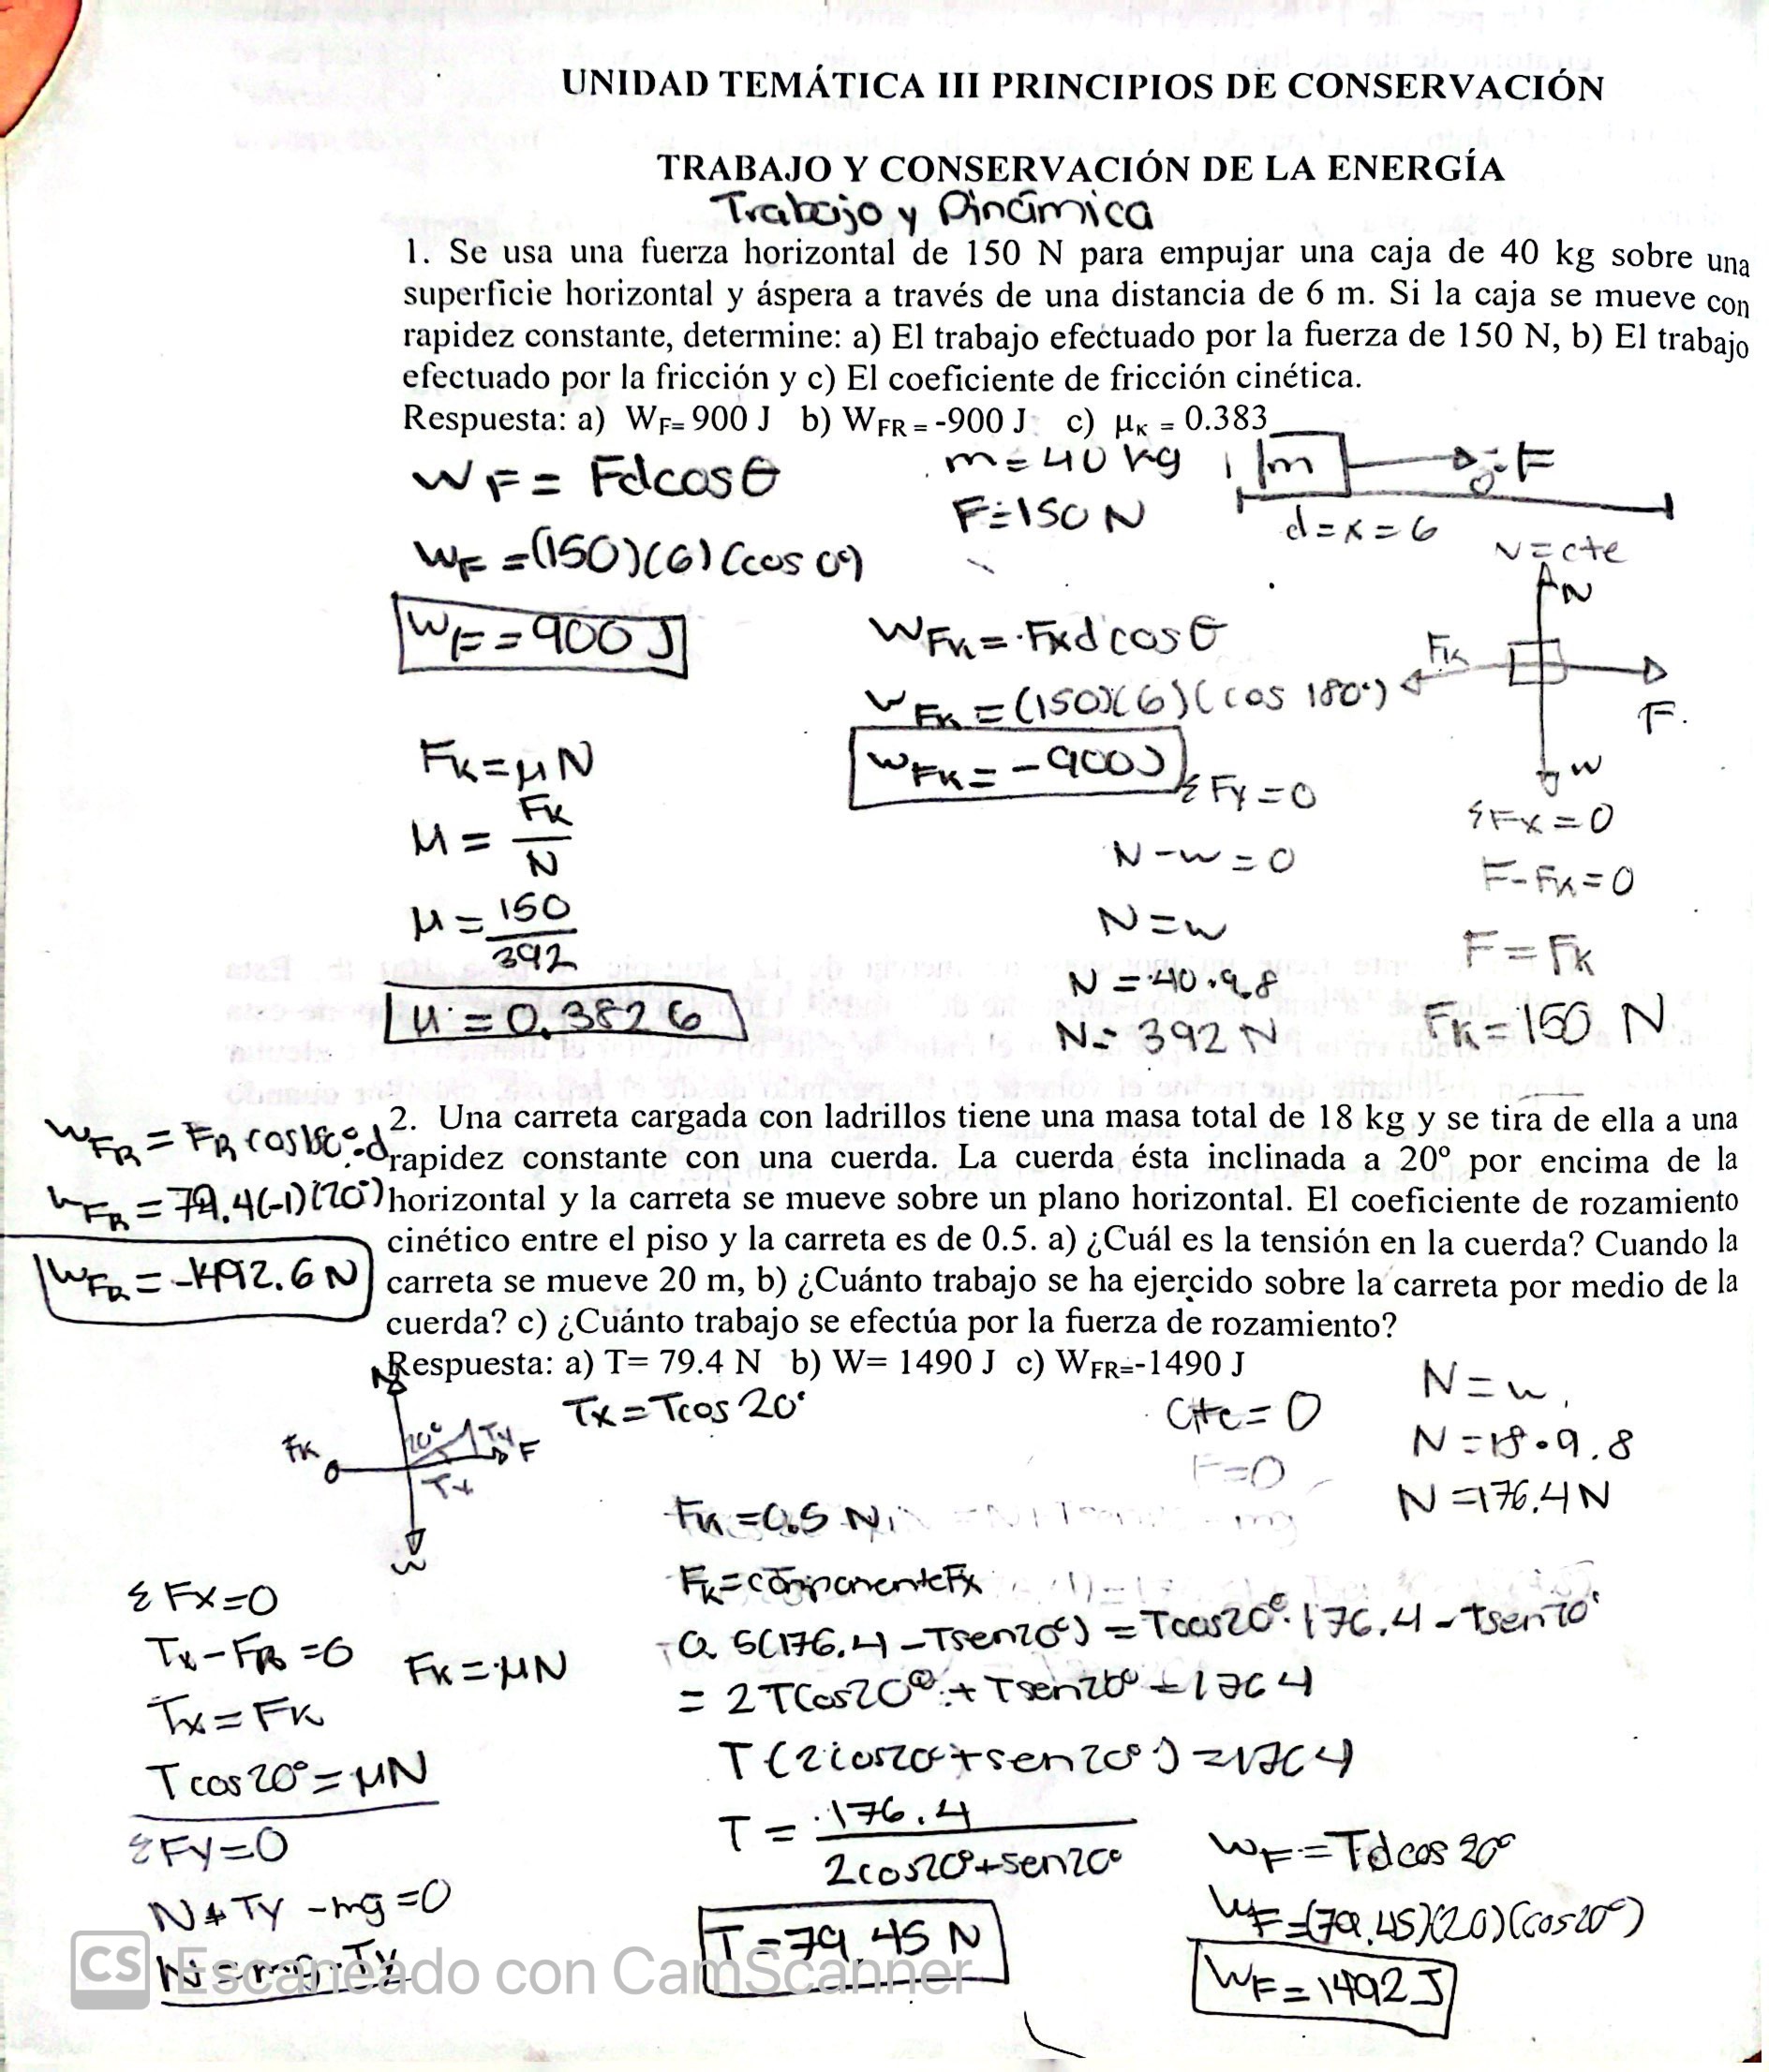 UNIDAD TEMÁTICA III PRINCIPIOS DE CONSERVACIÓN
TRABAJO Y CONSERVACIÓN DE LA ENERGÍA
Trabajo y Dinámica
1. Se usa una fuerza horizontal de 150 N para empujar una caja de 40 kg sobre una
superficie horizontal y áspera a través de una distancia de 6 m. Si la caja se mueve con
rapidez constante, determine: a) El trabajo efectuado por la fuerza de 150 N, b) El trabajo
efectuado por la fricción y c) El coeficiente de fricción cinética.
Respuesta: a) WF= 900 J b) WFR = -900 J c) μK = 0.383
WF = Fdcosθ
m = 40 kg
m
F
F=150 N
d=x=6
WF =(150)(6)(cos 0°)
v=cte
N
WF = 900 J
WFK = Fxd cosθ
FK
F
WFK = (150)(6)(cos 180°)
FK=μN
WFK = -900J
w
ΣFy=0
ΣFx=0
μ = FK/N
N-w=0
F-FK=0
μ = 150/392
N=w
F=FK
N=40.9.8
μ = 0.3826
N= 392 N
FK=150 N
2. Una carreta cargada con ladrillos tiene una masa total de 18 kg y se tira de ella a una
rapidez constante con una cuerda. La cuerda ésta inclinada a 20º por encima de la
horizontal y la carreta se mueve sobre un plano horizontal. El coeficiente de rozamiento
cinético entre el piso y la carreta es de 0.5. a) ¿Cuál es la tensión en la cuerda? Cuando la
carreta se mueve 20 m, b) ¿Cuánto trabajo se ha ejercido sobre la carreta por medio de la
cuerda? c) ¿Cuánto trabajo se efectúa por la fuerza de rozamiento?
Respuesta: a) T= 79.4 N b) W= 1490 J c) WFR=-1490 J
WFR = FR cos180°.d
WFR = 79.4(-1)(20)
WFR = -1492.6 N
N
20°
Ty
F
FK
Tx
w
Tx=Tcos 20°
Cte=0
F=0
N=w
N=18.9.8
N=176.4N
FK=0.5 N
FK=componenteFx
0.5(176.4-Tsen20°) = Tcos20°.176.4-Tsen20°
= 2Tcos20° + Tsen20° = 1764
T(2cos20°+sen20°)=1764
T = 176.4/2cos20°+sen20°
T=79.45 N
ΣFx=0
Tx-FR=0
FK=μN
Tx=FK
Tcos20°=μN
ΣFy=0
N+Ty-mg=0
N=mg-Ty
WF=Tdcos 20°
WF=(79.45)(20)(cos20°)
WF=1492J
CS Escaneado con CamScanner